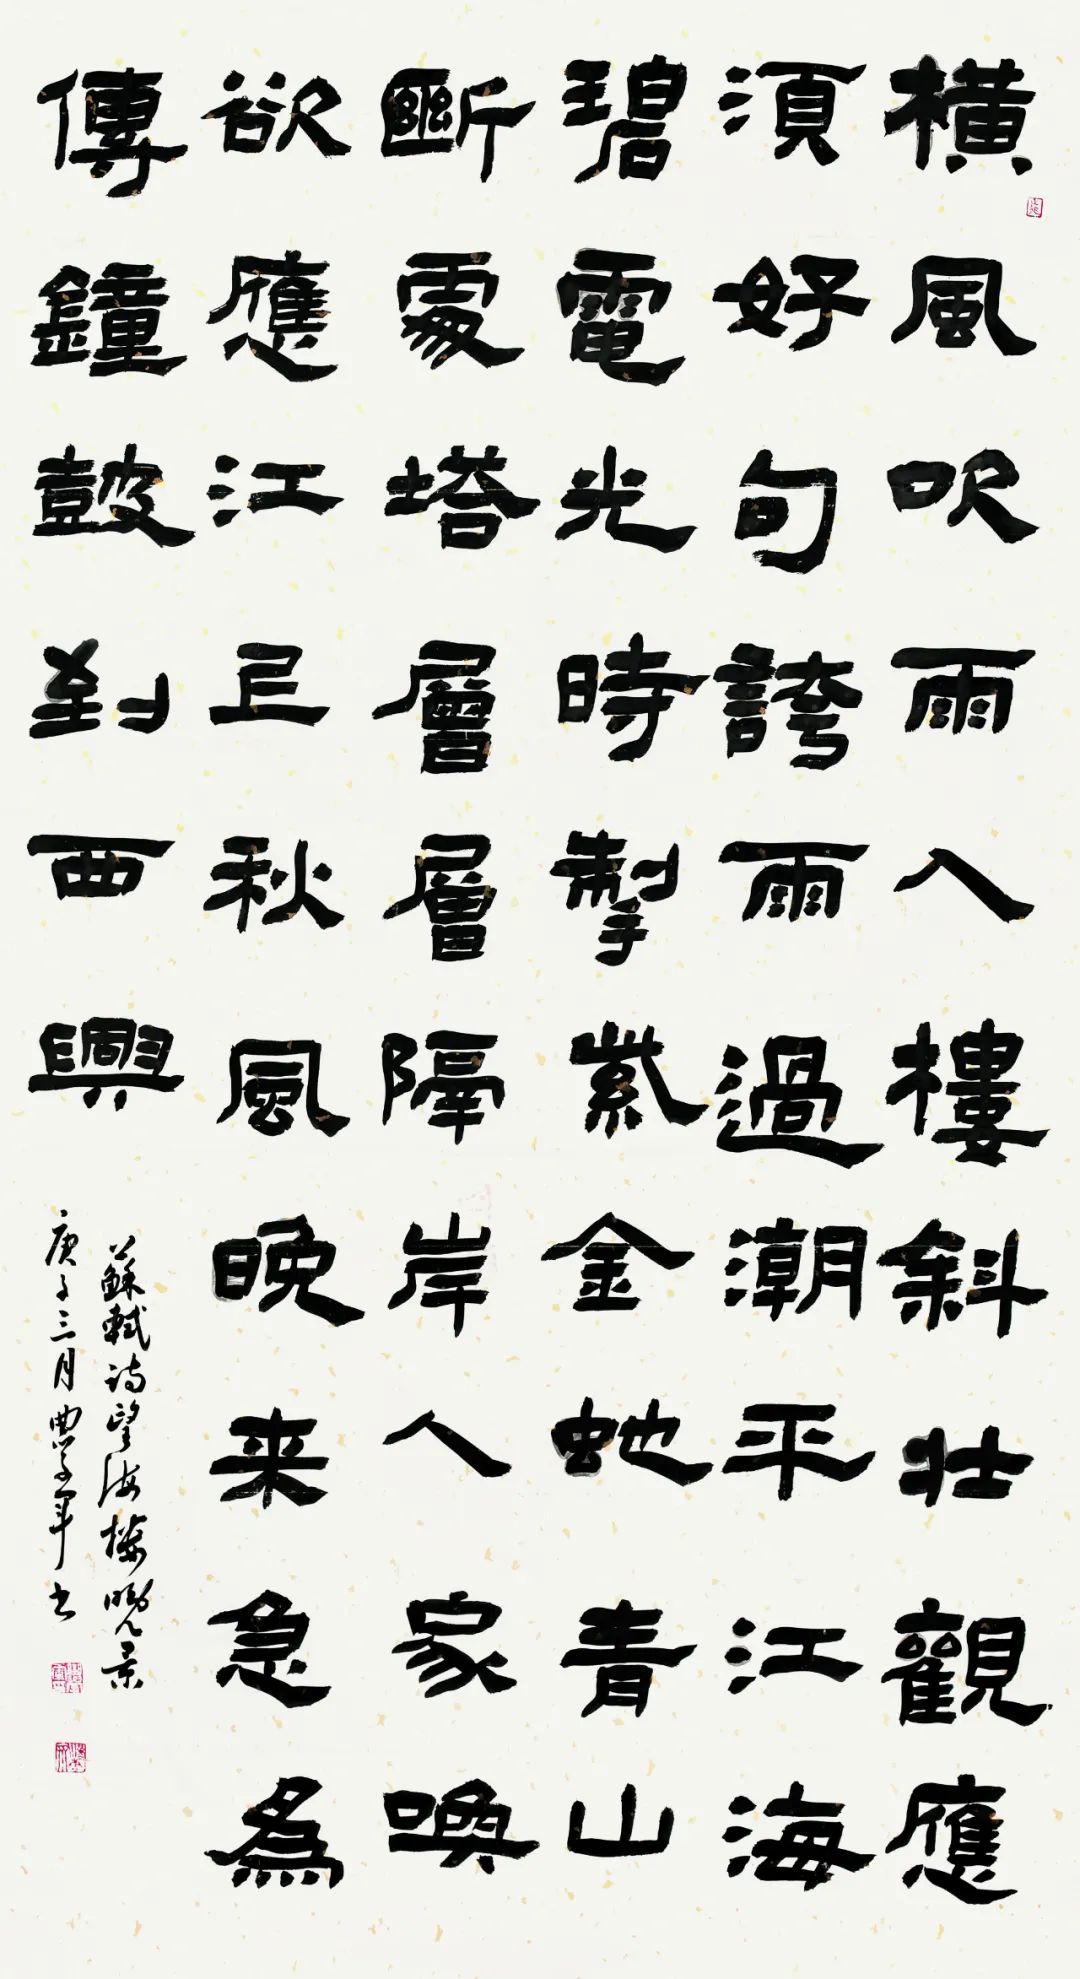 橫風吹雨入樓斜壯觀應
須好句誇雨過潮平江海
碧電光時掣紫金蛇青山
斷處塔層層隔岸人家喚
欲應江上秋風晚来急為
傳鐘鼓到西興
蘇軾詩望海樓晚景
庚子三月